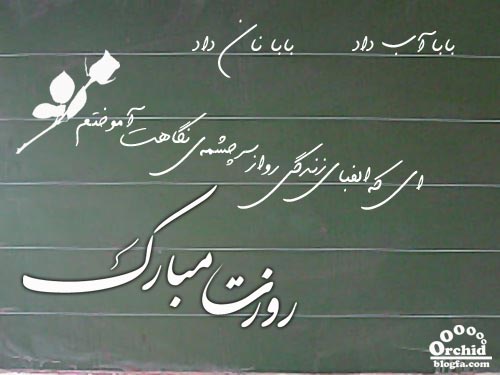 بابا آب داد    بابا نان داد
ای که الفبای زندگی رو از سرچشمه‌ی نگاهت آموختم
روزت مبارک
Orchid
blogfa.com